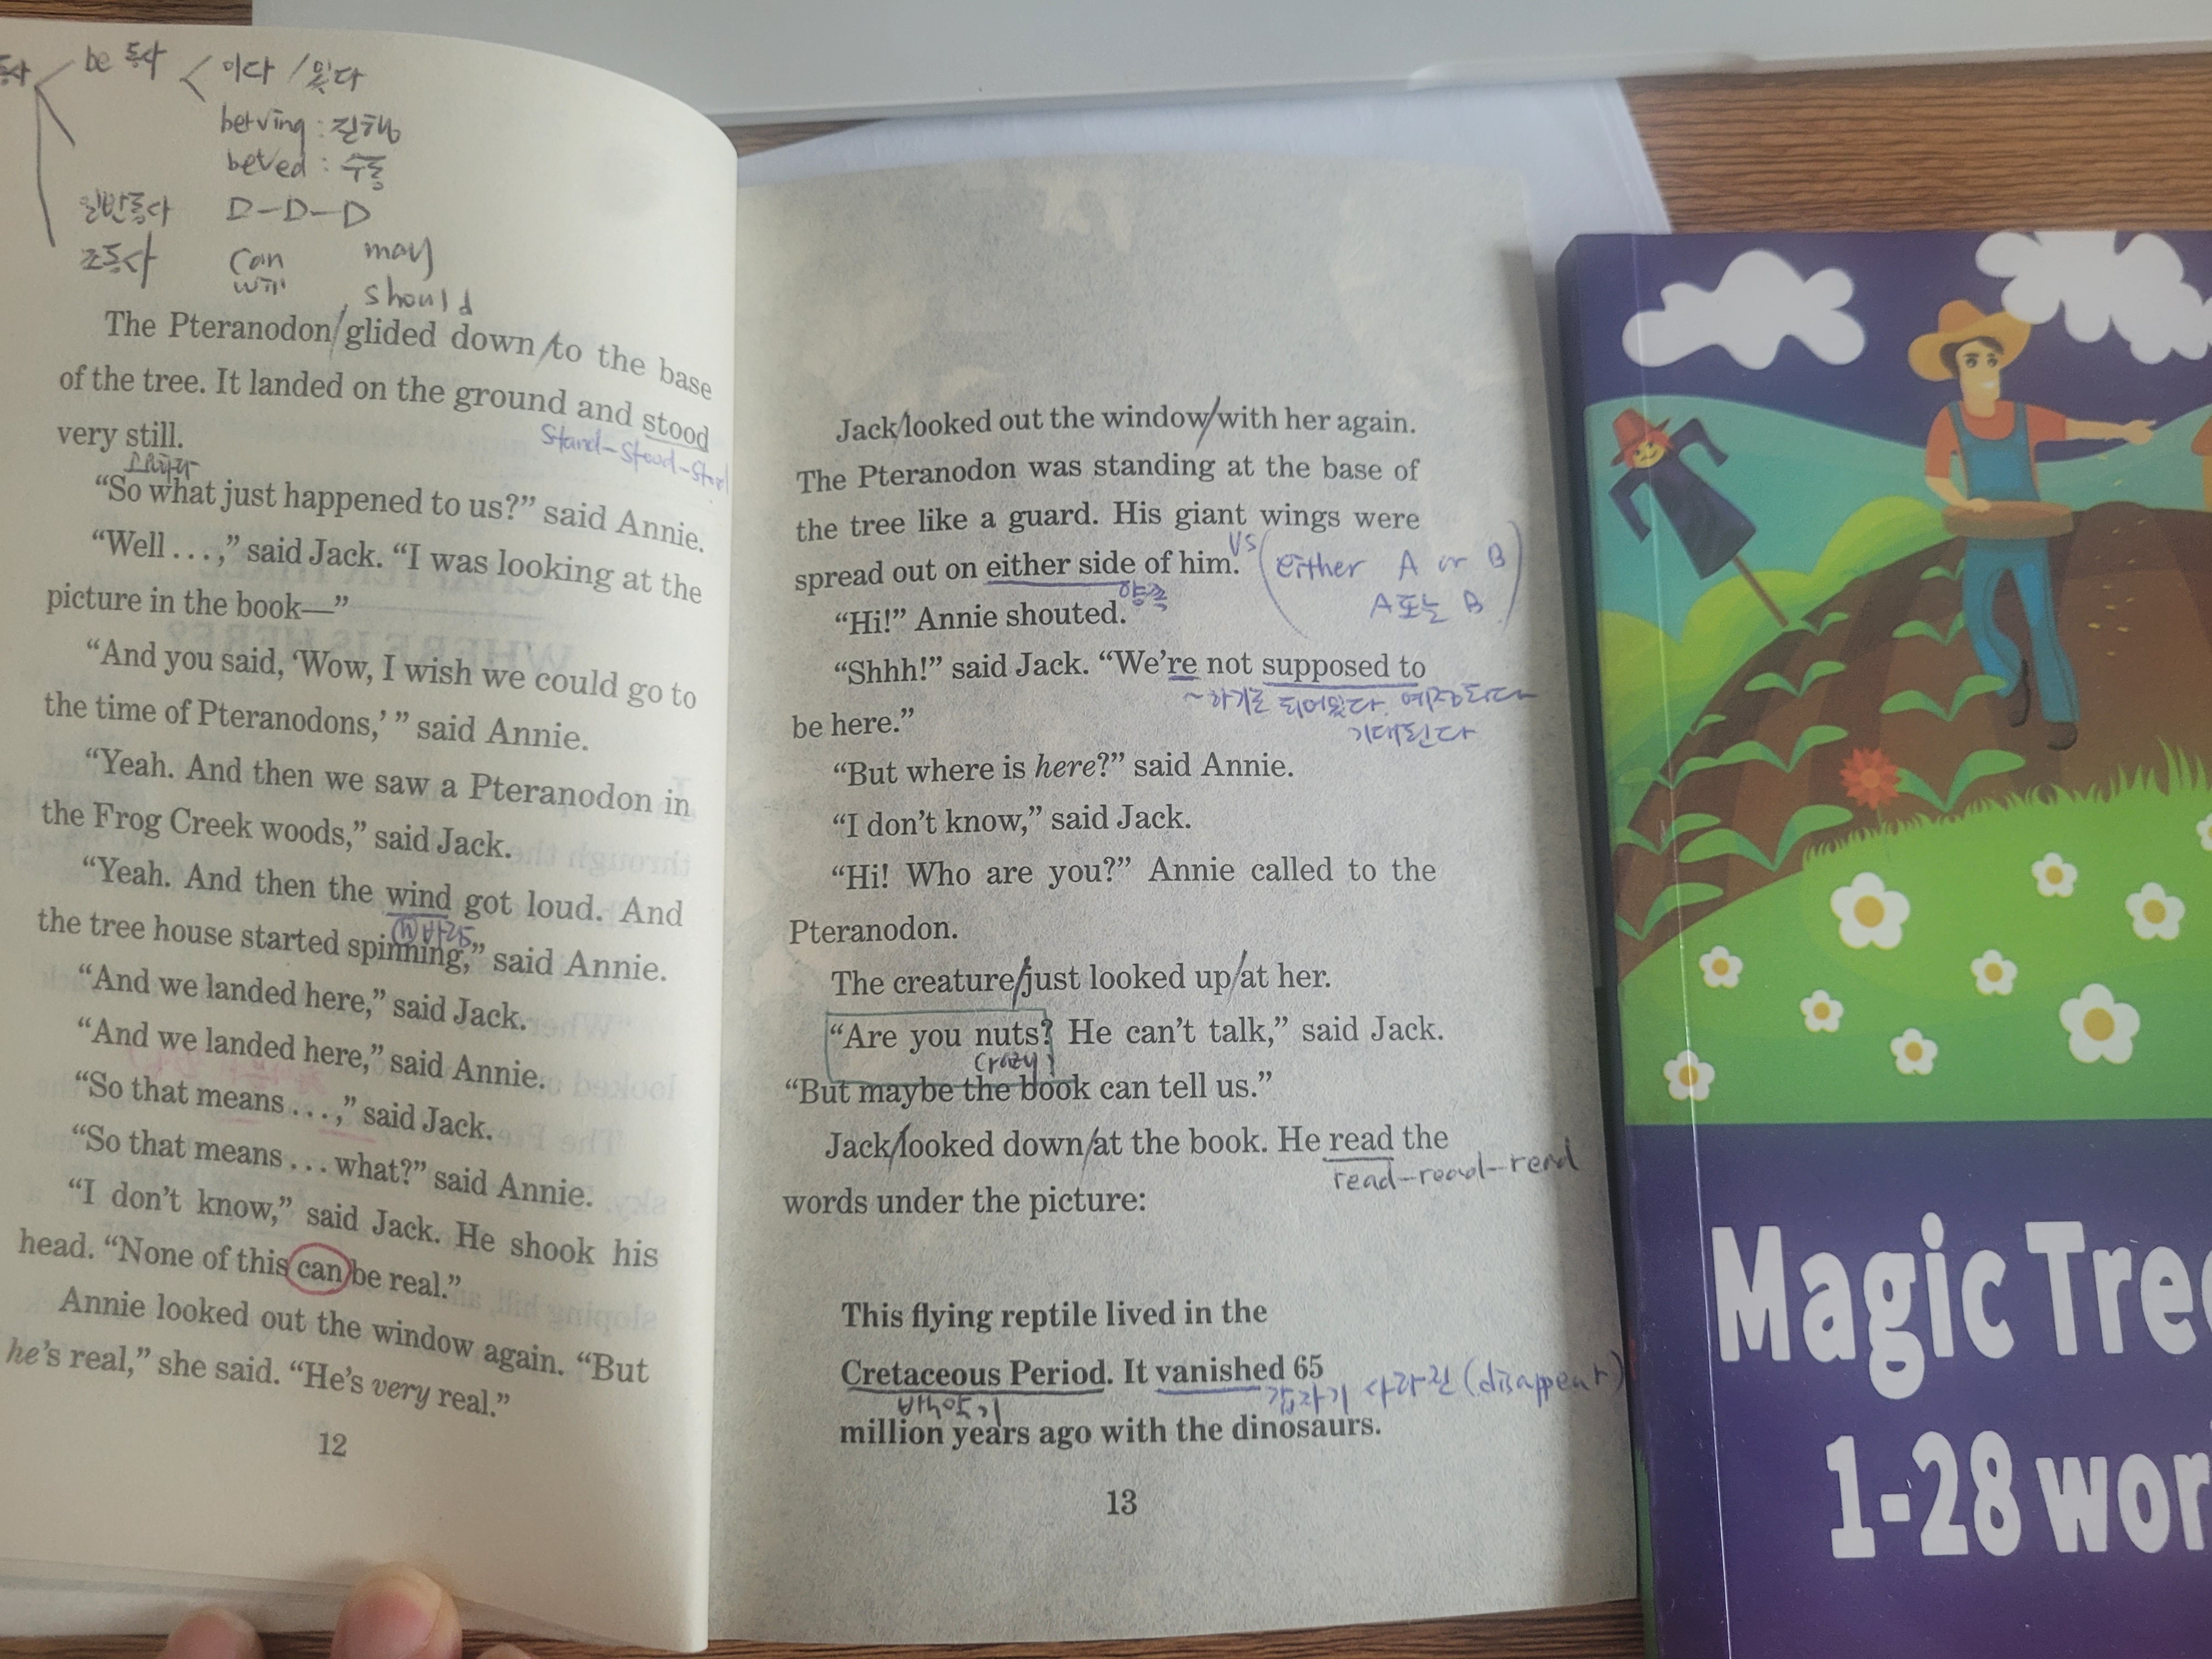 동사 be 동사 이다 / 있다
be+ving : 진행
be+ved : 수동
일반동사 D-D-D
조동사 can may
will should
The Pteranodon/glided down/to the base
of the tree. It landed on the ground and stood
stand-stood-stood
very still.
“So what just happened to us?” said Annie.
“Well . . . ,” said Jack. “I was looking at the
picture in the book—”
“And you said, ‘Wow, I wish we could go to
the time of Pteranodons,’ ” said Annie.
“Yeah. And then we saw a Pteranodon in
the Frog Creek woods,” said Jack.
“Yeah. And then the wind got loud. And
ⓝ바람
the tree house started spinning,” said Annie.
“And we landed here,” said Jack.
“And we landed here,” said Annie.
“So that means . . . ,” said Jack.
“So that means . . . what?” said Annie.
“I don’t know,” said Jack. He shook his
head. “None of this can be real.”
Annie looked out the window again. “But
he’s real,” she said. “He’s very real.”
12
Jack/looked out the window/with her again.
The Pteranodon was standing at the base of
the tree like a guard. His giant wings were
spread out on either side of him. vs (either A or B
양쪽 A또는 B)
“Hi!” Annie shouted.
“Shhh!” said Jack. “We’re not supposed to
~하기로 되어있다. 예정되다
기대된다
be here.”
“But where is here?” said Annie.
“I don’t know,” said Jack.
“Hi! Who are you?” Annie called to the
Pteranodon.
The creature/just looked up/at her.
“Are you nuts? He can’t talk,” said Jack.
crazy?
“But maybe the book can tell us.”
Jack/looked down/at the book. He read the
read-read-read
words under the picture:
This flying reptile lived in the
Cretaceous Period. It vanished 65
백악기 갑자기 사라진 (disappear)
million years ago with the dinosaurs.
13
Magic Tree
1-28 wor